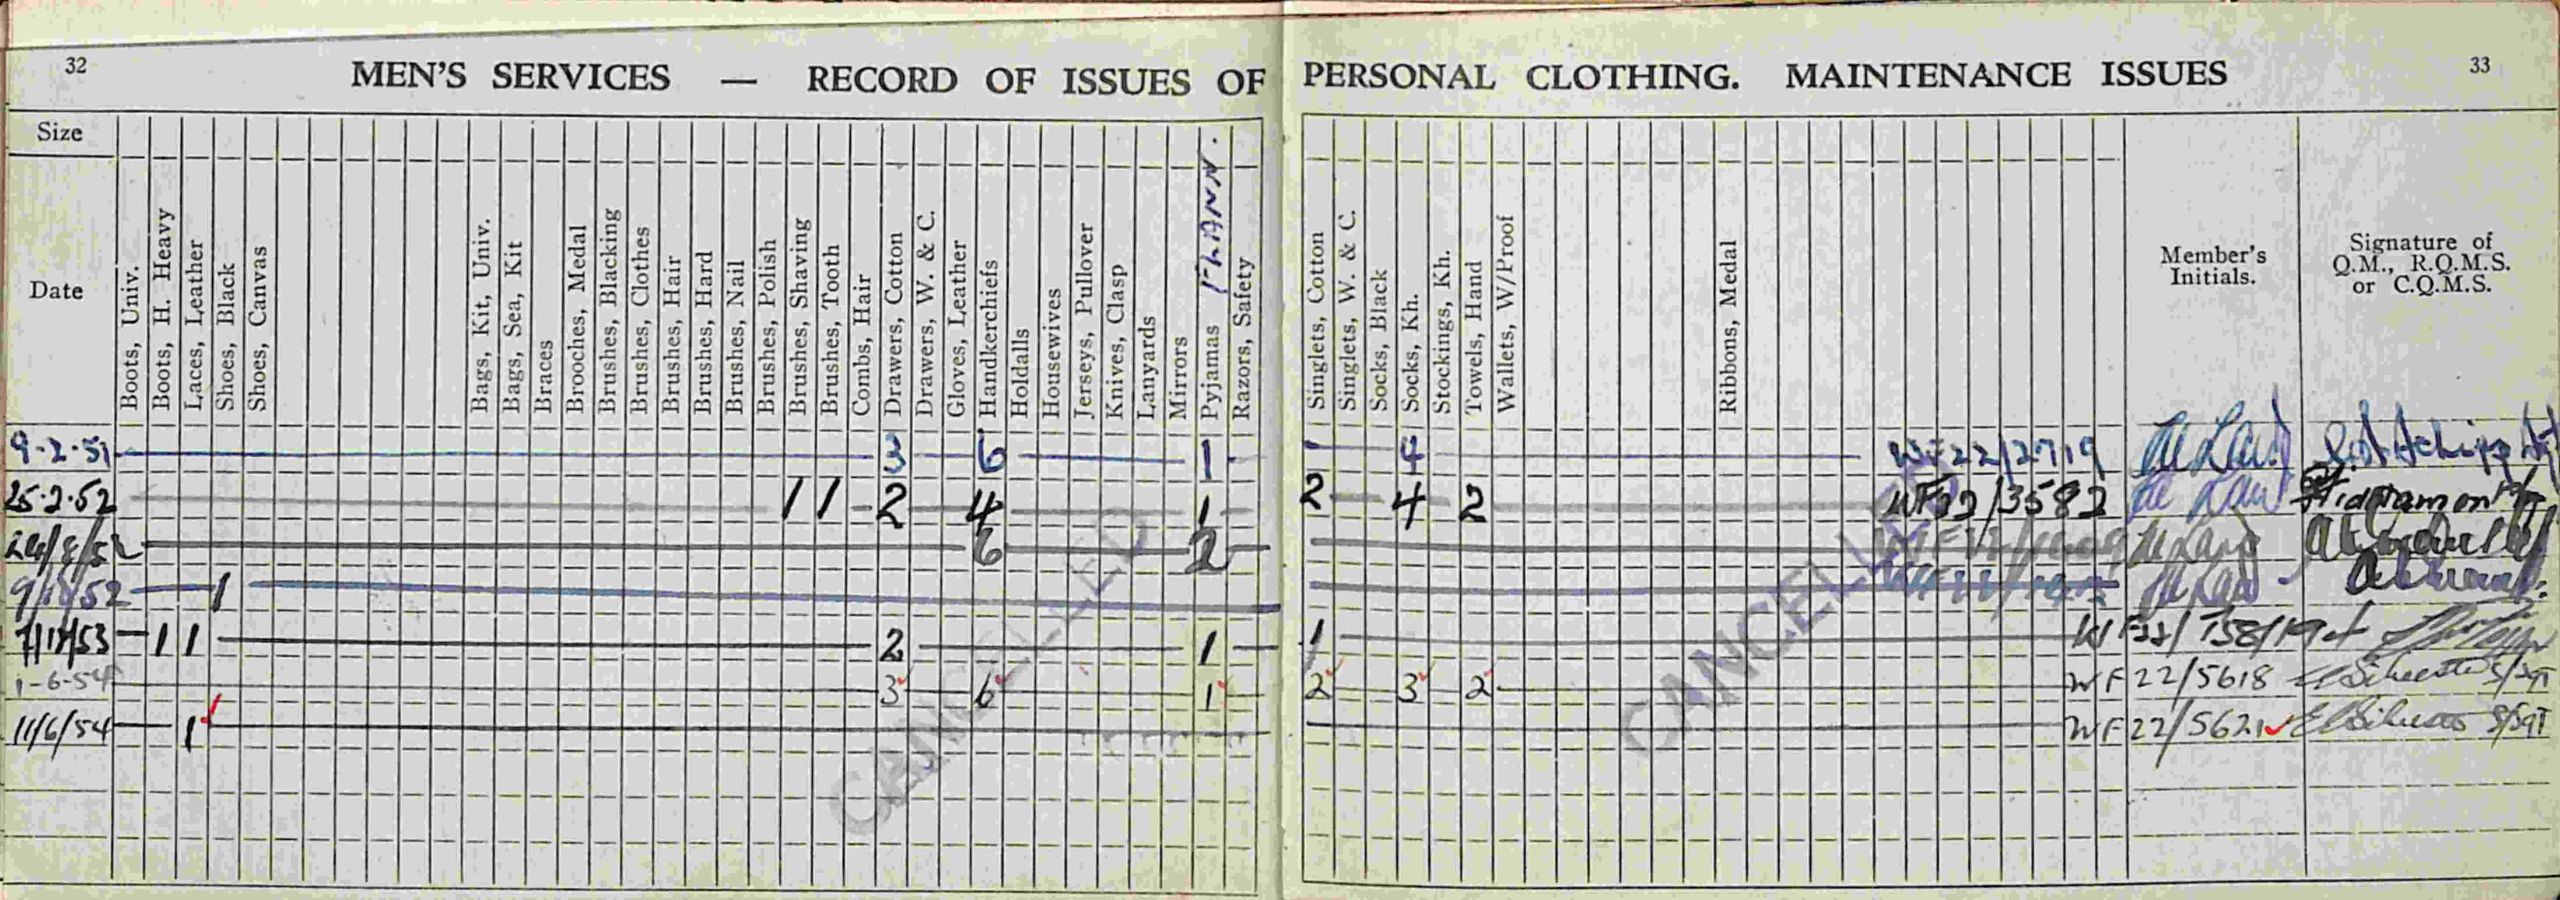 32
MEN'S SERVICES — RECORD OF ISSUES OF PERSONAL CLOTHING. MAINTENANCE ISSUES
33
Size
Date
Boots, Univ.
Boots, H. Heavy
Laces, Leather
Shoes, Black
Shoes, Canvas
Bags, Kit, Univ.
Bags, Sea, Kit
Braces
Brooches, Medal
Brushes, Blacking
Brushes, Clothes
Brushes, Hair
Brushes, Hard
Brushes, Nail
Brushes, Polish
Brushes, Shaving
Brushes, Tooth
Combs, Hair
Drawers, Cotton
Drawers, W. & C.
Gloves, Leather
Handkerchiefs
Holdalls
Housewives
Jerseys, Pullover
Knives, Clasp
Lanyards
Mirrors
Pyjamas FLANN.
Razors, Safety
Singlets, Cotton
Singlets, W. & C.
Socks, Black
Socks, Kh.
Stockings, Kh.
Towels, Hand
Wallets, W/Proof
Ribbons, Medal
Member's Initials.
Signature of Q.M., R.Q.M.S. or C.Q.M.S.
9-2-51 3 6 1 4 WF22/2719
25-2-52 1 1 2 4 1 2 4 2 WF22/3582
6 2
1
1 1 2 1 1
1-6-54 3 6 1 2 3 2 WF 22/5618 S/Sgt
11/6/54 1 WF 22/5621 S/Sgt
CANCELLED
CANCELLED